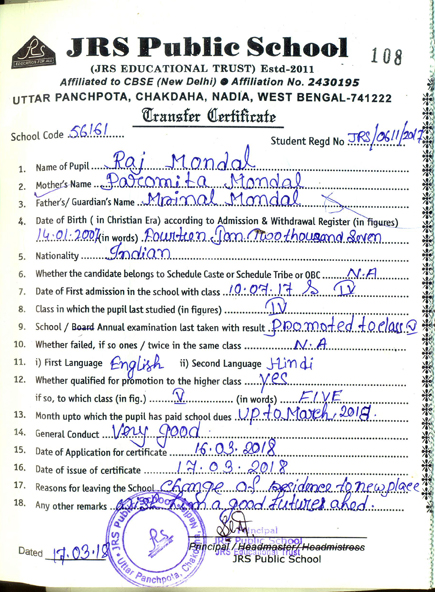 JRS
EDUCATION FOR ALL
JRS Public School
108
(JRS EDUCATIONAL TRUST) Estd-2011
Affiliated to CBSE (New Delhi) ● Affiliation No. 2430195
UTTAR PANCHPOTA, CHAKDAHA, NADIA, WEST BENGAL-741222
Transfer Certificate
School Code 56161
Student Regd No. JRS/0611/2017
1. Name of Pupil Raj Mondal
2. Mother's Name Paromita Mondal
3. Father's/ Guardian's Name Mrinmal Mondal
4. Date of Birth ( in Christian Era) according to Admission & Withdrawal Register (in figures)
14.01.2007 (in words) Fourteen Jan Twothousand Seven
5. Nationality Indian
6. Whether the candidate belongs to Schedule Caste or Schedule Tribe or OBC N.A
7. Date of First admission in the school with class 10.07.17 & IV
8. Class in which the pupil last studied (in figures) IV
9. School / Board Annual examination last taken with result promoted to class V
10. Whether failed, if so ones / twice in the same class N.A
11. i) First Language English ii) Second Language Hindi
12. Whether qualified for promotion to the higher class yes
if so, to which class (in fig.) V (in words) FIVE
13. Month upto which the pupil has paid school dues Up to March, 2018
14. General Conduct Very good
15. Date of Application for certificate 16.03.2018
16. Date of issue of certificate 17.03.2018
17. Reasons for leaving the School Change of residence to new place
18. Any other remarks wish him a good future ahed.
Principal
JRS Public School
JRS Educational Trust
Principal / Headmaster / Headmistress
Dated 17.03.18
JRS Public School